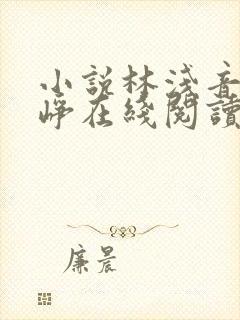 小說林淺音
崢在綫閱讀
廉晨